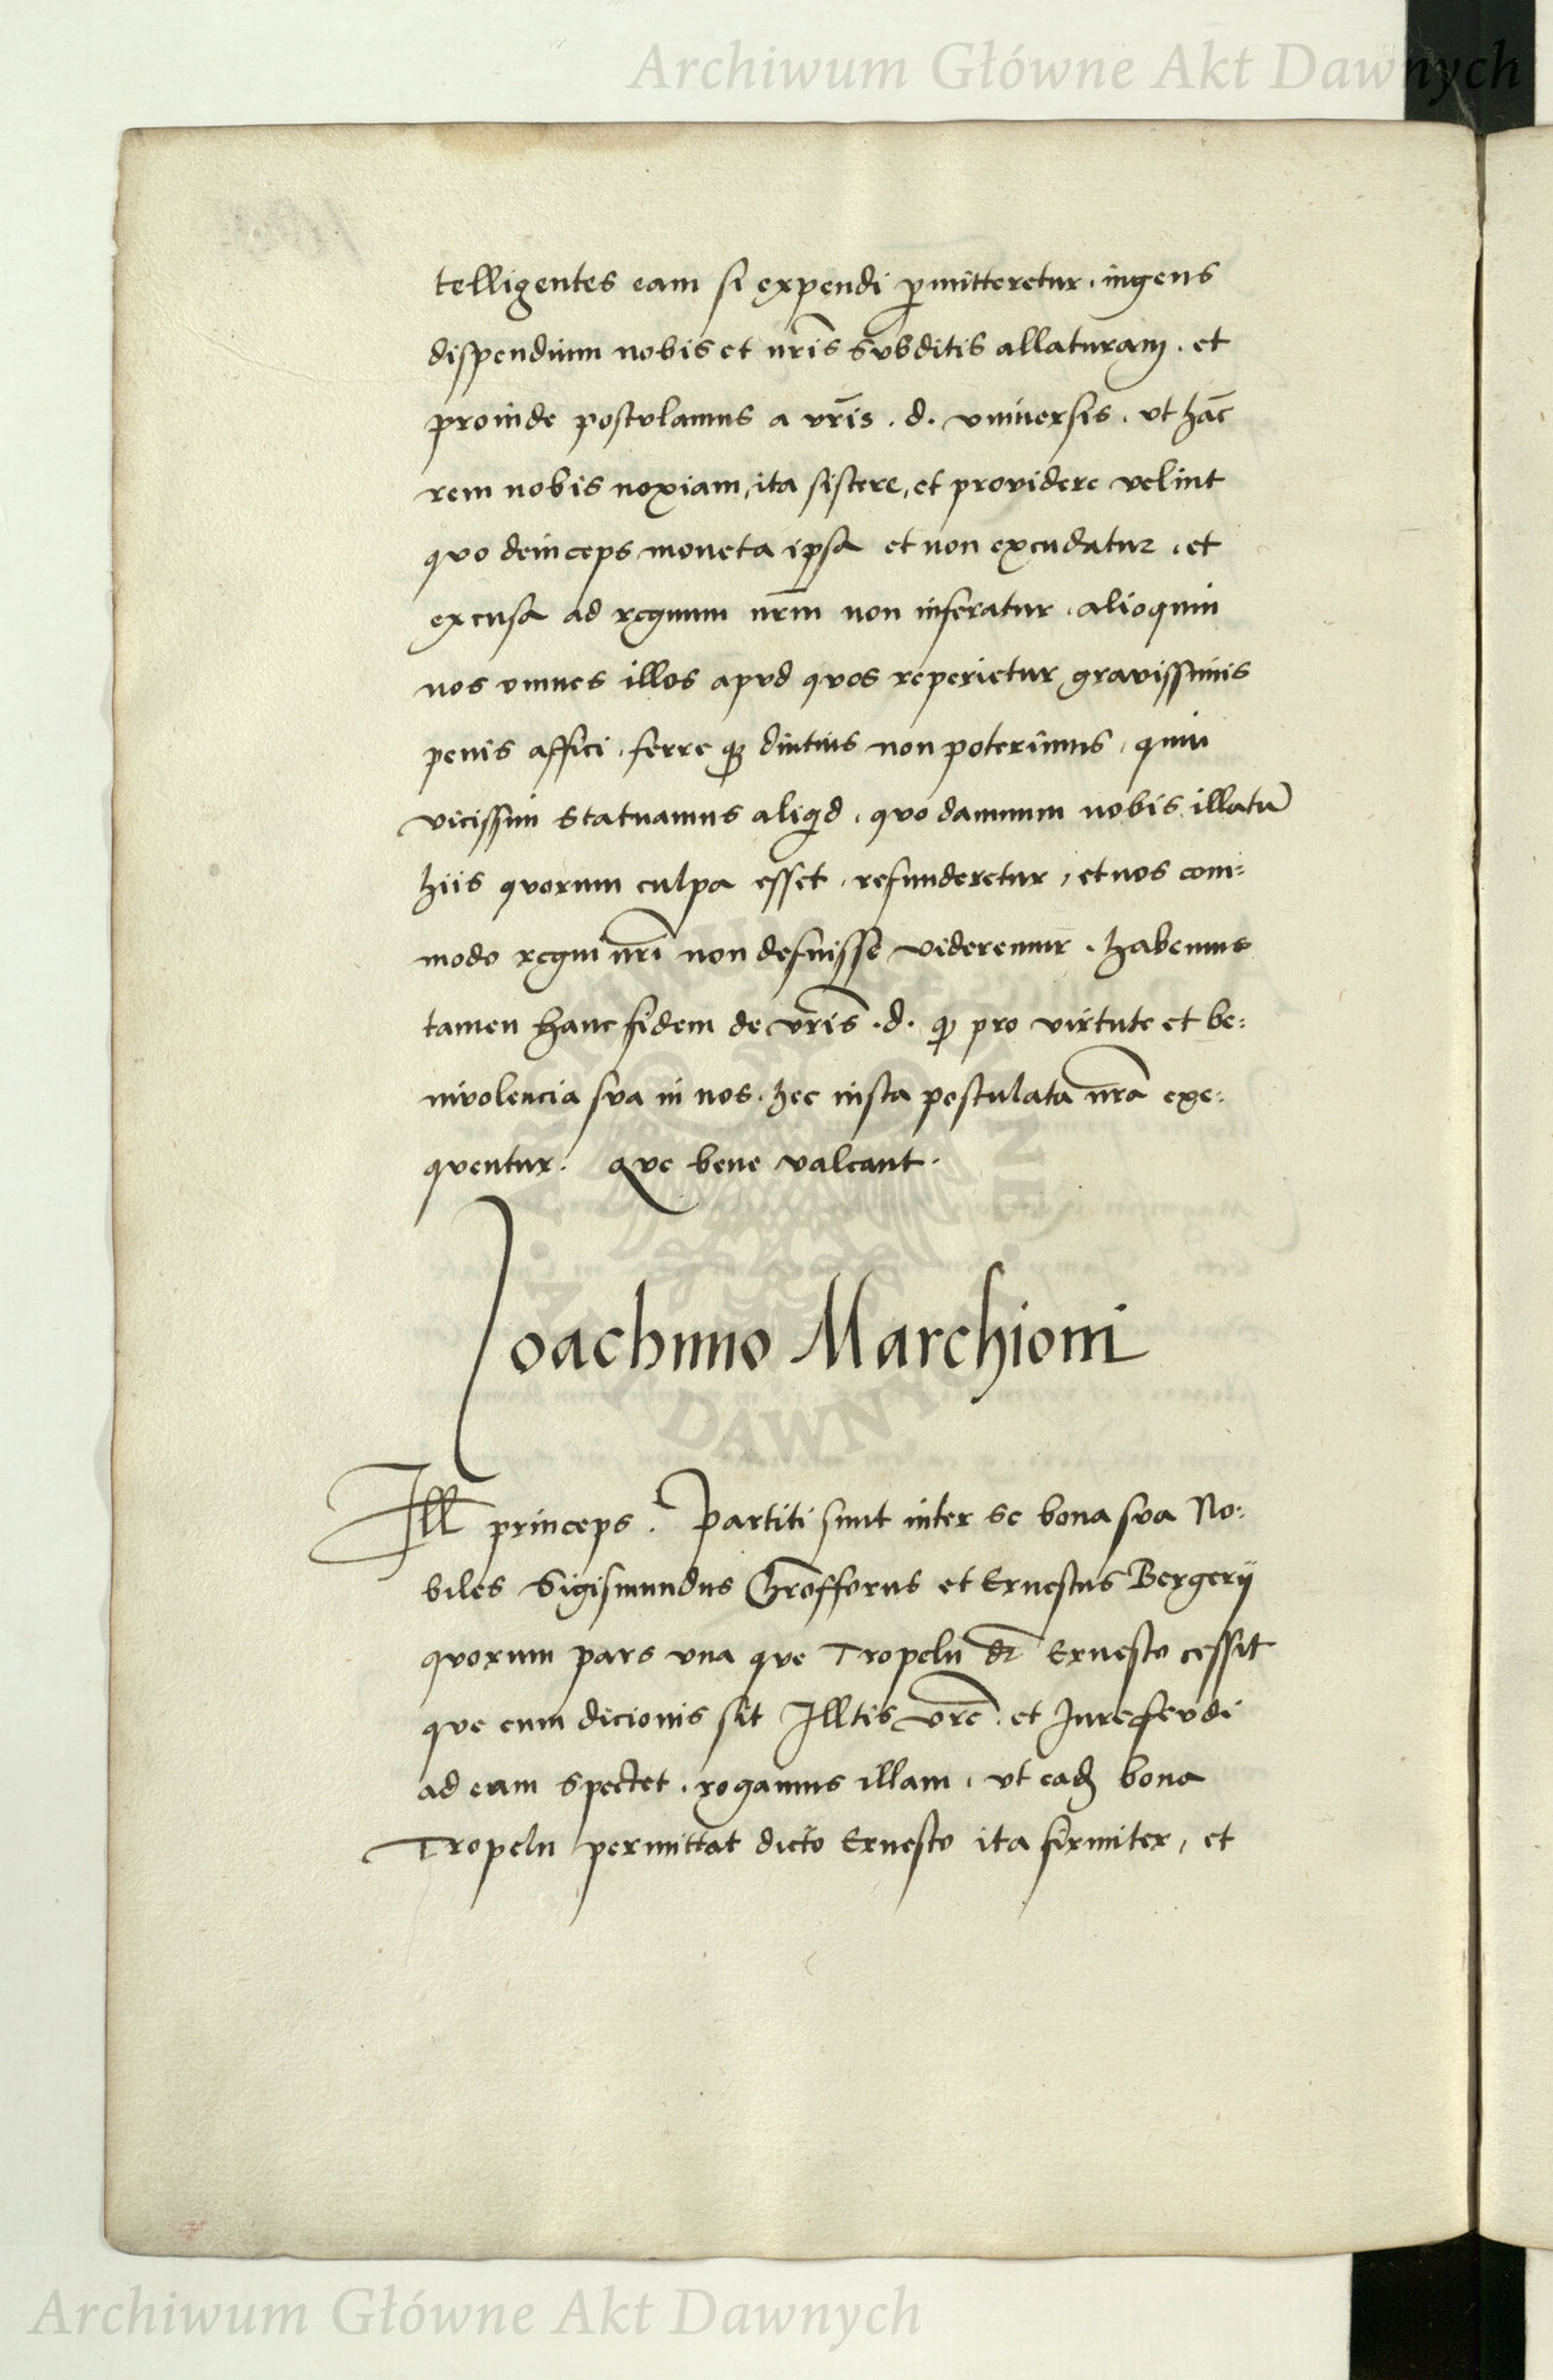 Archiwum Główne Akt Dawnych
telligentes eam si expendi pmitteretur. ingens
dispendium nobis et nris subditis allaturam. et
proinde postulamus a vris. d. universis. ut hac
rem nobis noxiam, ita sistere, et providere velint
quo deinceps moneta ipsa et non excudatur. et
excusa ad regnum nrm non inferatur. alioquin
nos omnes illos apud quos reperietur gravissimis
penis affici. ferre q3 diutius non poterimus, quin
vicissim statuamus aliqd. quo damnum nobis illatu
hiis quorum culpa esset. refunderetur, et nos com=
modo regni nri non defuisse videremur. habemus
tamen hanc fidem de vris. d. q pro virtute et be=
nivolencia sua in nos. hec iusta postulata nra exe=
quentur. Que bene valeant.
Joachimo Marchioni
Ill princeps. Partiti sunt inter se bona sua No=
biles Sigismundus Grofforus et Ernestus Bergerii
quorum pars una que Tropeln dr Ernesto cessit
que cum dicionis sit Illtis vre. et Jure feudi
ad eam spectet. rogamus illam. ut ead3 bona
Tropeln permittat dicto Ernesto ita firmiter, et
Archiwum Główne Akt Dawnych